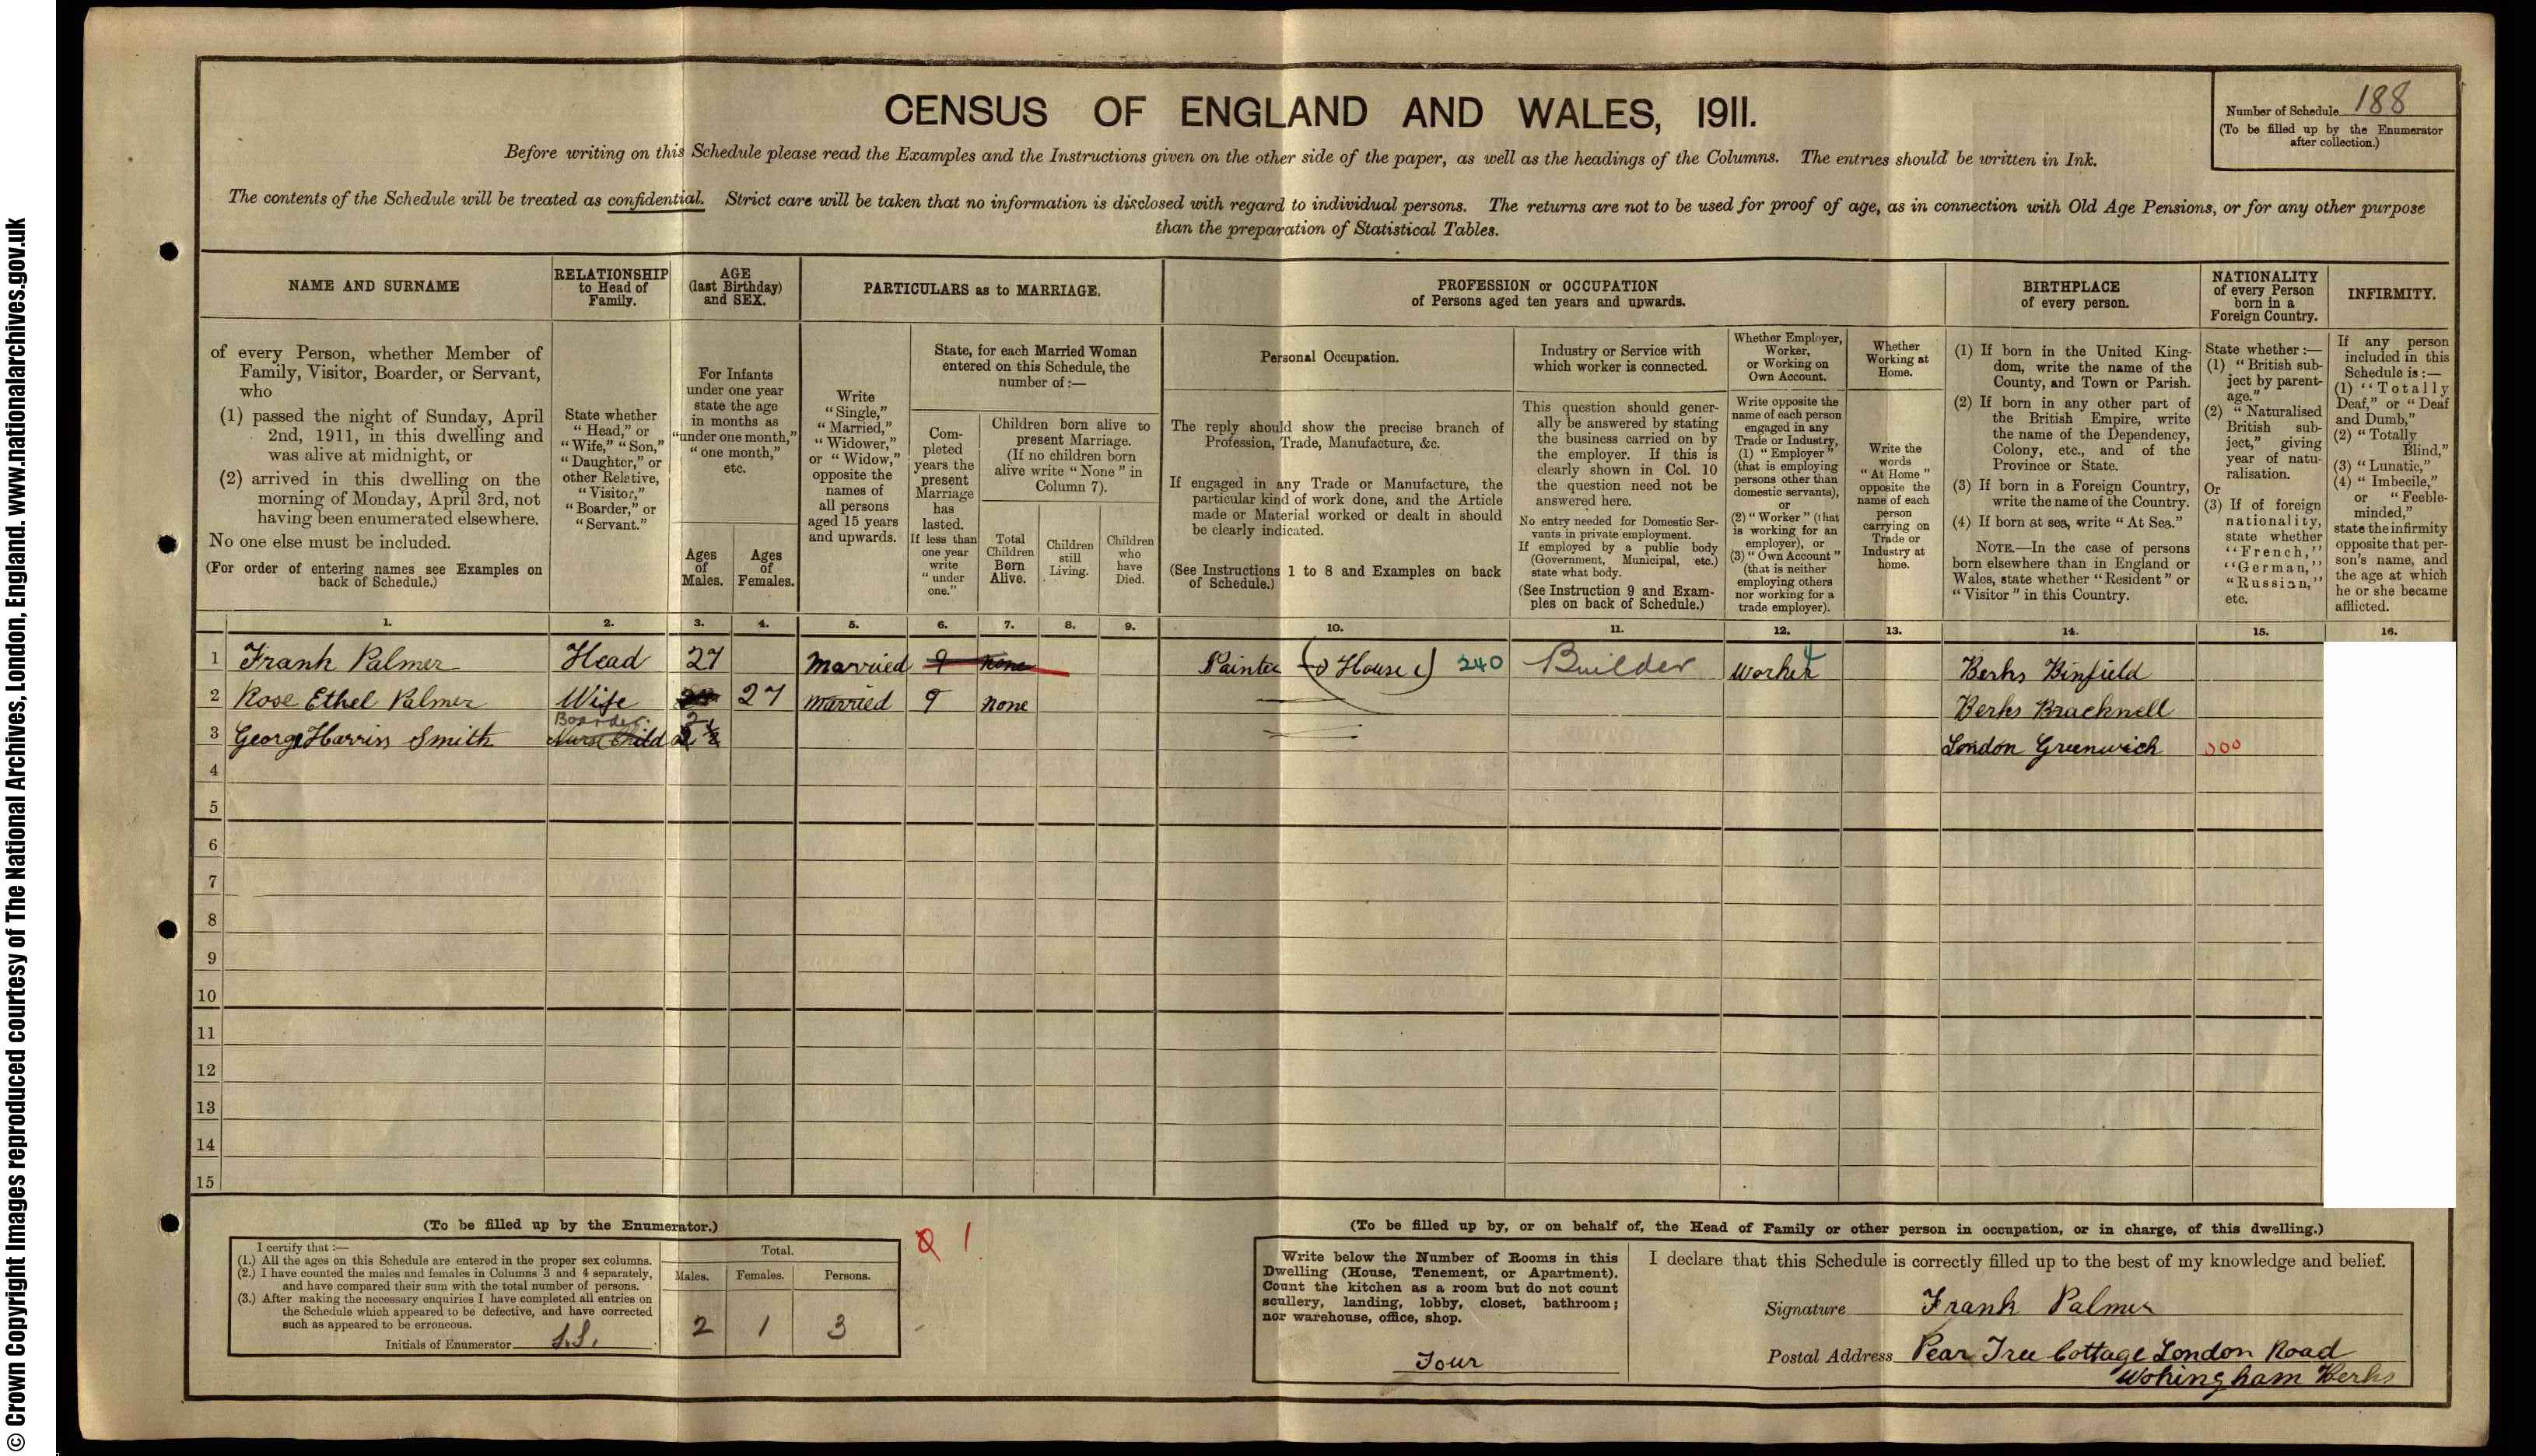 © Crown Copyright Images reproduced courtesy of The National Archives, London, England. www.nationalarchives.gov.uk
CENSUS OF ENGLAND AND WALES, 1911.
Number of Schedule 188
(To be filled up by the Enumerator
after collection.)
Before writing on this Schedule please read the Examples and the Instructions given on the other side of the paper, as well as the headings of the Columns. The entries should be written in Ink.
The contents of the Schedule will be treated as confidential. Strict care will be taken that no information is disclosed with regard to individual persons. The returns are not to be used for proof of age, as in connection with Old Age Pensions, or for any other purpose
than the preparation of Statistical Tables.
NAME AND SURNAME
of every Person, whether Member of
Family, Visitor, Boarder, or Servant,
who
(1) passed the night of Sunday, April
2nd, 1911, in this dwelling and
was alive at midnight, or
(2) arrived in this dwelling on the
morning of Monday, April 3rd, not
having been enumerated elsewhere.
No one else must be included.
(For order of entering names see Examples on
back of Schedule.)
RELATIONSHIP
to Head of
Family.
State whether
"Head," or
"Wife," "Son,"
"Daughter," or
other Relative,
"Visitor,"
"Boarder," or
"Servant."
AGE
(last Birthday)
and SEX.
For Infants
under one year
state the age
in months as
"under one month,"
"one month,"
etc.
Ages
of
Males.
Ages
of
Females.
PARTICULARS as to MARRIAGE.
Write
"Single,"
"Married,"
"Widower,"
or "Widow,"
opposite the
names of
all persons
aged 15 years
and upwards.
State, for each Married Woman
entered on this Schedule, the
number of :—
Com-
pleted
years the
present
Marriage
has
lasted.
If less than
one year
write
"under
one."
Children born alive to
present Marriage.
(If no children born
alive write "None" in
Column 7).
Total
Children
Born
Alive.
Children
still
Living.
Children
who
have
Died.
PROFESSION or OCCUPATION
of Persons aged ten years and upwards.
Personal Occupation.
The reply should show the precise branch of
Profession, Trade, Manufacture, &c.
If engaged in any Trade or Manufacture, the
particular kind of work done, and the Article
made or Material worked or dealt in should
be clearly indicated.
(See Instructions 1 to 8 and Examples on back
of Schedule.)
Industry or Service with
which worker is connected.
This question should gener-
ally be answered by stating
the business carried on by
the employer. If this is
clearly shown in Col. 10
the question need not be
answered here.
No entry needed for Domestic Ser-
vants in private employment.
If employed by a public body
(Government, Municipal, etc.)
state what body.
(See Instruction 9 and Exam-
ples on back of Schedule.)
Whether Employer,
Worker,
or Working on
Own Account.
Write opposite the
name of each person
engaged in any
Trade or Industry,
(1) "Employer"
(that is employing
persons other than
domestic servants),
or
(2) "Worker" (that
is working for an
employer), or
(3) "Own Account"
(that is neither
employing others
nor working for a
trade employer).
Whether
Working at
Home.
Write the
words
"At Home"
opposite the
name of each
person
carrying on
Trade or
Industry at
home.
BIRTHPLACE
of every person.
(1) If born in the United King-
dom, write the name of the
County, and Town or Parish.
(2) If born in any other part of
the British Empire, write
the name of the Dependency,
Colony, etc., and of the
Province or State.
(3) If born in a Foreign Country,
write the name of the Country.
(4) If born at sea, write "At Sea."
NOTE.—In the case of persons
born elsewhere than in England or
Wales, state whether "Resident" or
"Visitor" in this Country.
NATIONALITY
of every Person
born in a
Foreign Country.
State whether :—
(1) "British sub-
ject by parent-
age."
(2) "Naturalised
British sub-
ject," giving
year of natu-
ralisation.
Or
(3) If of foreign
nationality,
state whether
"French,"
"German,"
"Russian,"
etc.
INFIRMITY.
If any person
included in this
Schedule is :—
(1) "Totally
Deaf," or "Deaf
and Dumb,"
(2) "Totally
Blind,"
(3) "Lunatic,"
(4) "Imbecile,"
or "Feeble-
minded,"
state the infirmity
opposite that per-
son's name, and
the age at which
he or she became
afflicted.
1. 2. 3. 4. 5. 6. 7. 8. 9. 10. 11. 12. 13. 14. 15. 16.
1 Frank Palmer Head 27 Married 9 none Painter (House) 240 Builder Worker 4 Berks Binfield
2 Rose Ethel Palmer Wife 27 Married 9 none Berks Bracknell
Boarder
3 George Harriss Smith Nurse Child 2 London Greenwich 000
4
5
6
7
8
9
10
11
12
13
14
15
(To be filled up by the Enumerator.)
I certify that :—
(1.) All the ages on this Schedule are entered in the proper sex columns.
(2.) I have counted the males and females in Columns 3 and 4 separately,
and have compared their sum with the total number of persons.
(3.) After making the necessary enquiries I have completed all entries on
the Schedule which appeared to be defective, and have corrected
such as appeared to be erroneous.
Initials of Enumerator
Total.
Males. Females. Persons.
2 1 3
1
(To be filled up by, or on behalf of, the Head of Family or other person in occupation, or in charge, of this dwelling.)
Write below the Number of Rooms in this
Dwelling (House, Tenement, or Apartment).
Count the kitchen as a room but do not count
scullery, landing, lobby, closet, bathroom;
nor warehouse, office, shop.
Four
I declare that this Schedule is correctly filled up to the best of my knowledge and belief.
Signature Frank Palmer
Postal Address Pear Tree Cottage London Road
Wokingham Berks